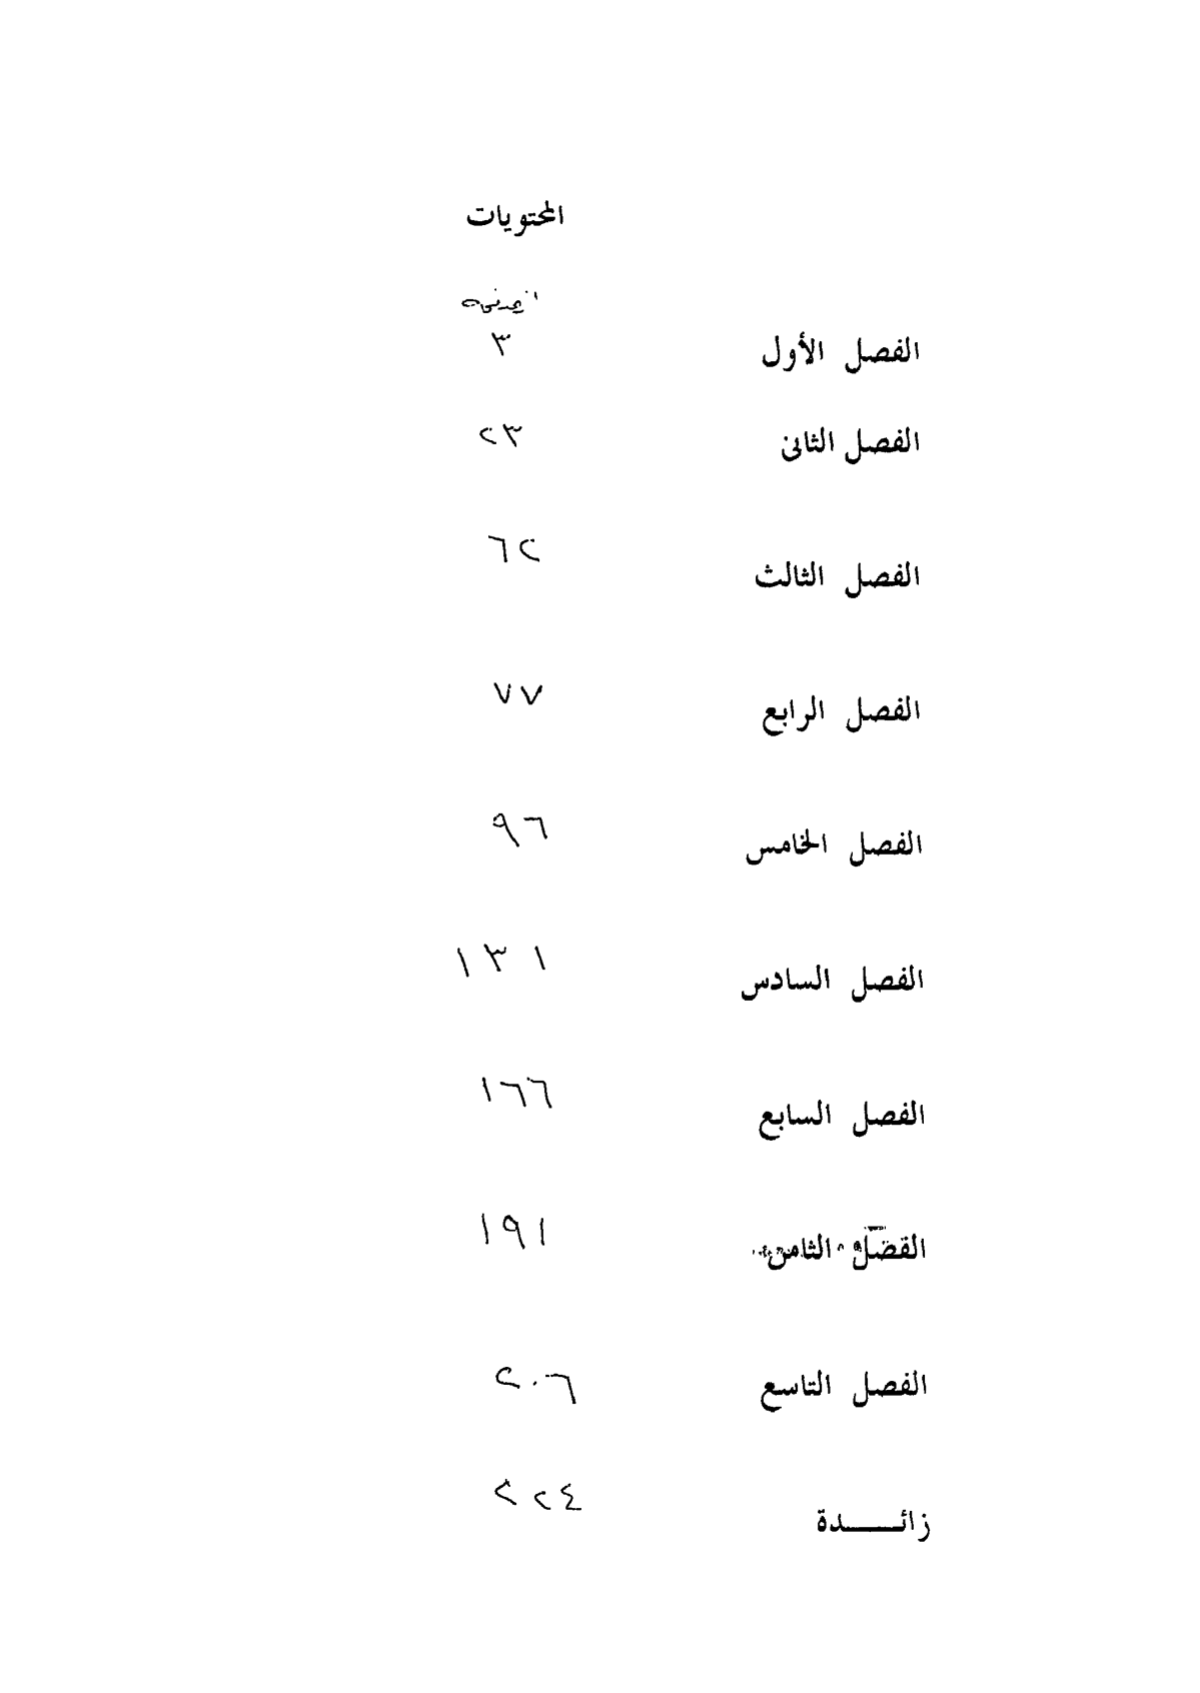 المحتويات
الفصل الأول ٣
الفصل الثانى ٢٣
الفصل الثالث ٦٢
الفصل الرابع ٧٧
الفصل الخامس ٩٦
الفصل السادس ١٣١
الفصل السابع ١٦٦
الفصل الثامن ١٩١
الفصل التاسع ٢٠٦
زائـــــدة ٢٢٤